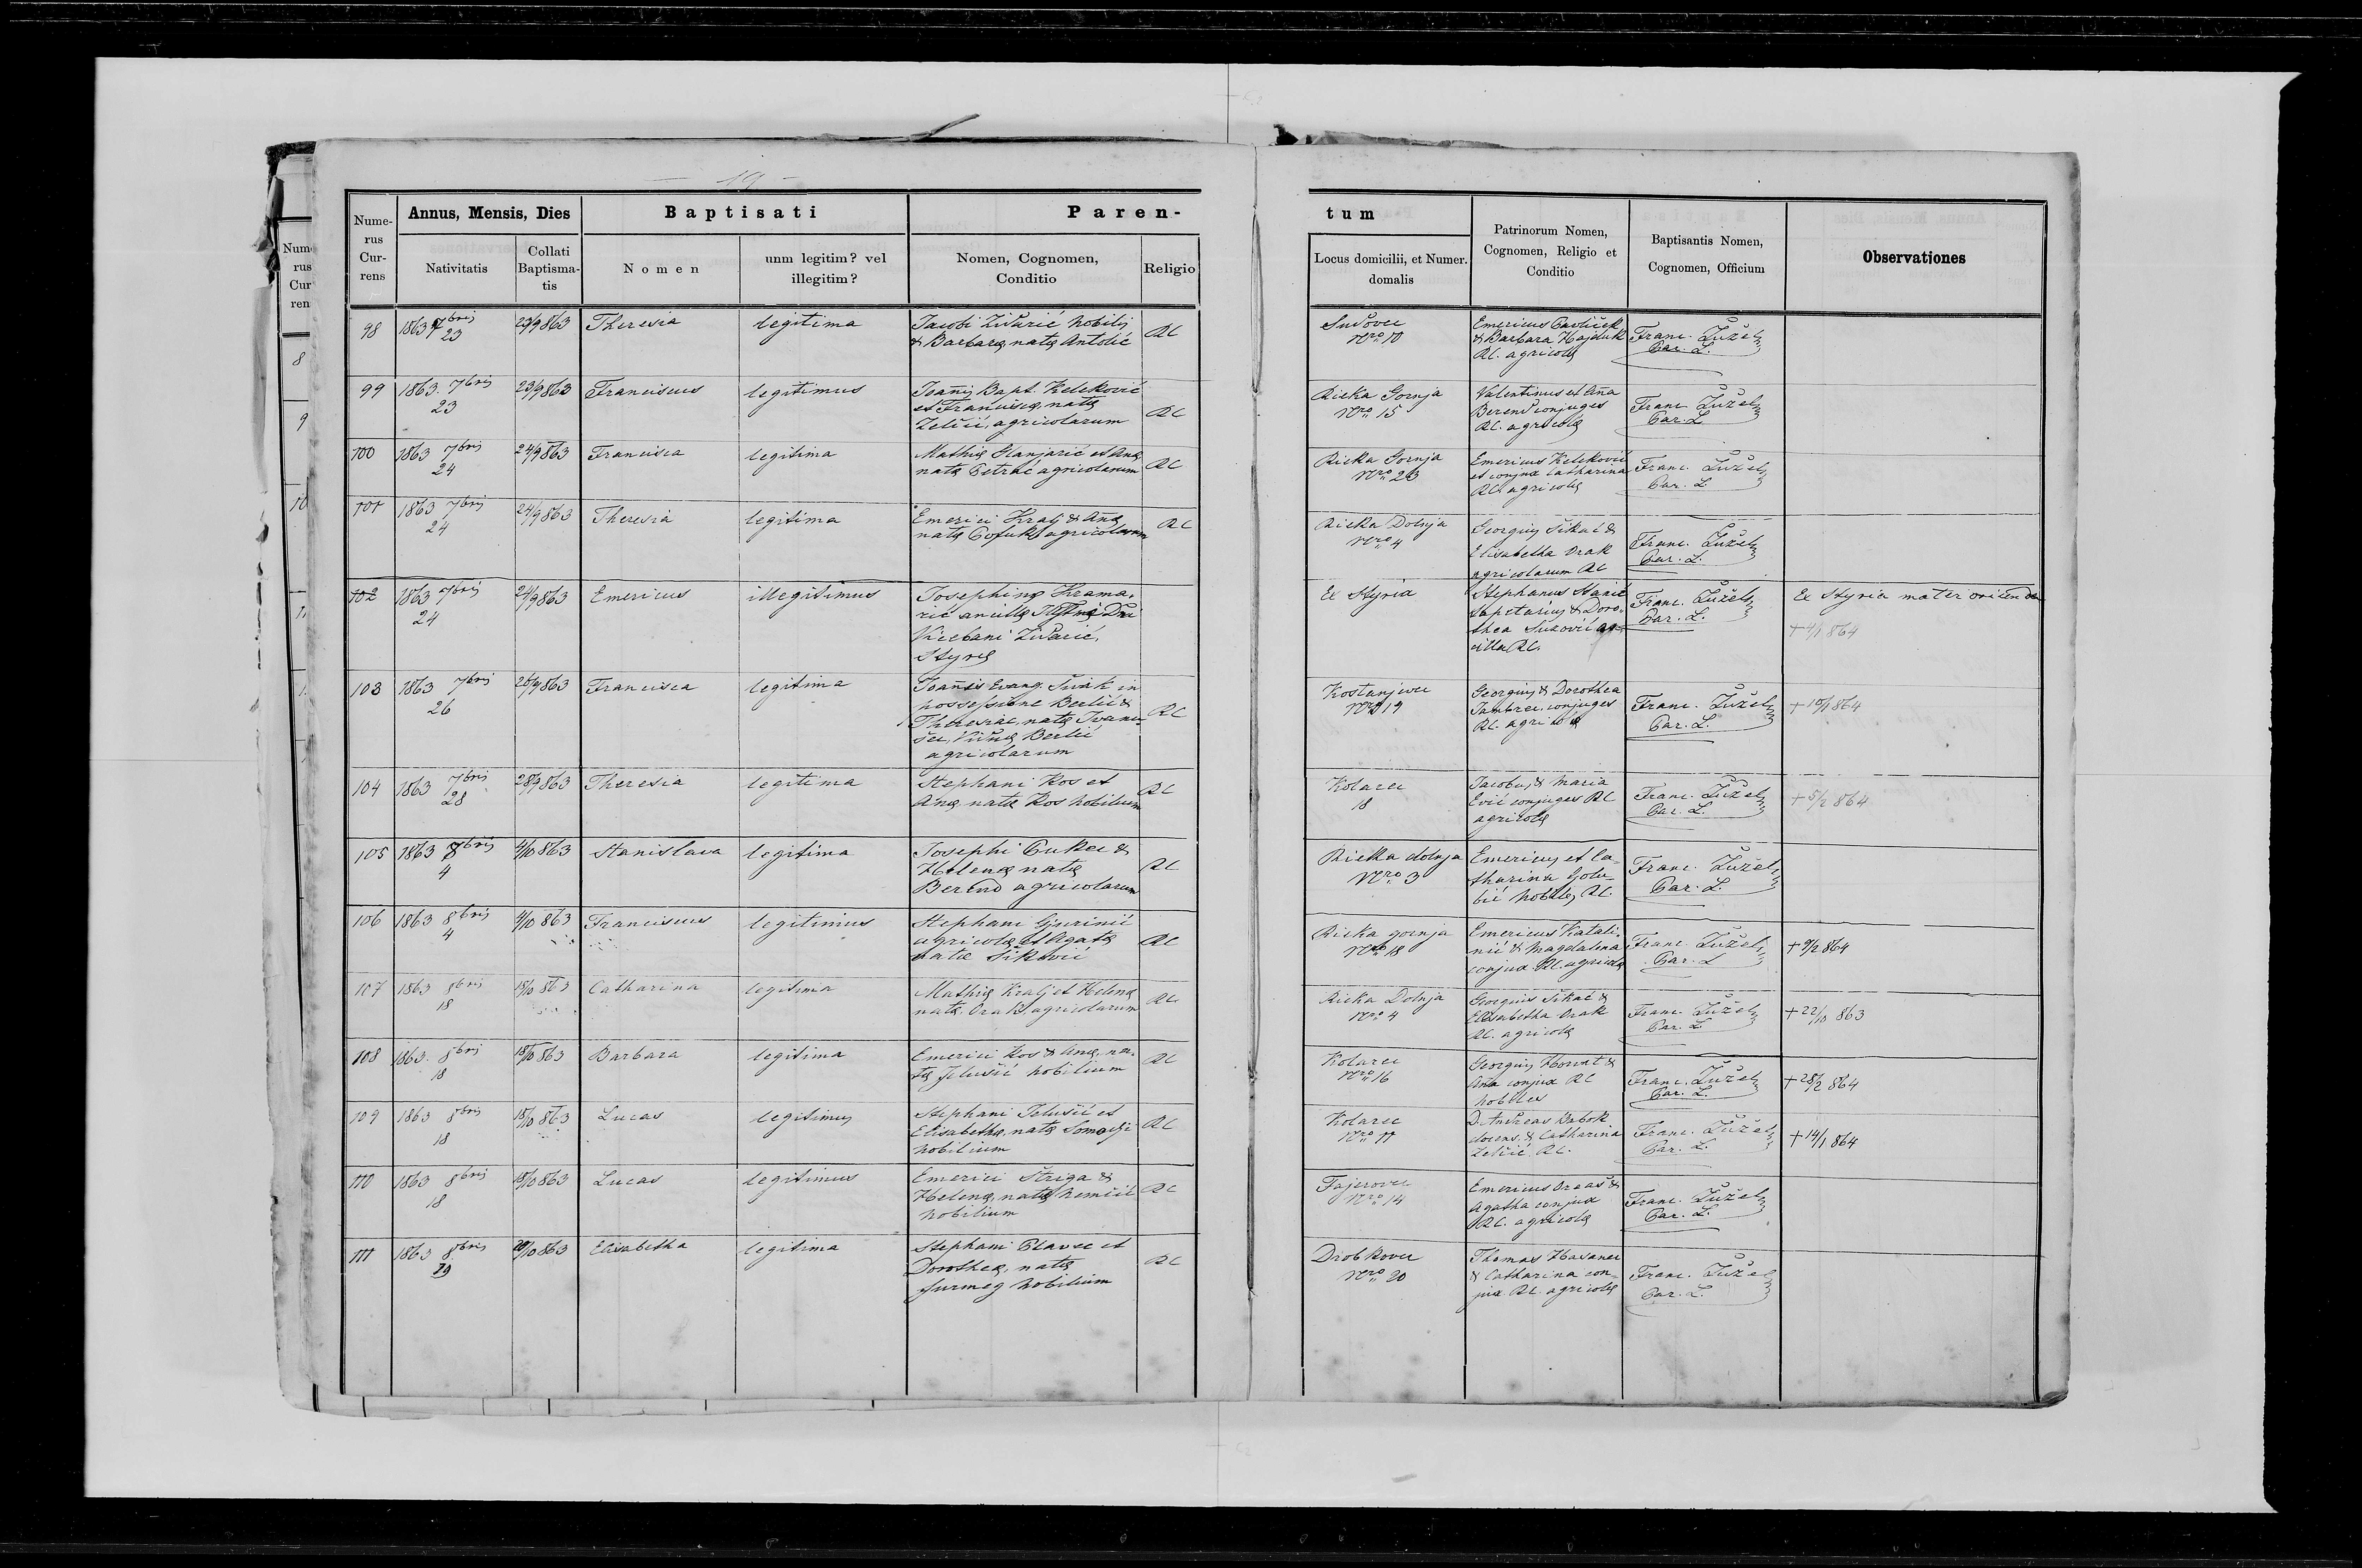 - 19 -
Nume-
rus
Cur-
rens
Annus, Mensis, Dies
Nativitatis
Collati
Baptisma-
tis
Baptisati
Nomen
unm legitim? vel
illegitim?
Paren-
Nomen, Cognomen,
Conditio
Religio
tum
Locus domicilii, et Numer.
domalis
Patrinorum Nomen,
Cognomen, Religio et
Conditio
Baptisantis Nomen,
Cognomen, Officium
Observationes
98 1863 7bris 23 23/9 863 Theresia legitima
Jacobi Židarić nobilis
& Barbarę natę Antolić
RC
Nro 10
Emericus
& Barbara Hajduk
RC. agricolę
Franc. Žužel
Par. L.
99 1863. 7bris 23 23/9 863 Franciscus legitimus
Joannis Bapt. Keleković
et Franciscę, natę
Zelčić, agricolarum
RC
Rieka Gornja
Nro 15
Valentinus et Aña
Berend conjuges
RC. agricolę
Franc. Žužel
Par. L.
100 1863 7bris 24 24/9 863 Francisca legitima
Mathię Hanjarić et Anę
natę Petrac agricolarum
RC
Rieka Gornja
Nro 23
Emericus Keleković
et conjux Catharina
RC. agricolę
Franc. Žužel
Par. L.
101 1863 7bris 24 24/9 863 Theresia legitima
Emerici Kralj & Anę
natę agricolarum
RC
Rieka Dolnja
Nro 4
Georgius Šikač &
Elisabetha Orak
agricolarum RC
Franc. Žužel
Par. L.
102 1863 7bris 24 24/9 863 Emericus illegitimus
Josephinę Krama-
rić ancillę
Židarić,
Styrę
Ex Styria
Stephanus
& Doro-
thea
RC.
Franc. Žužel
Par. L.
Ex Styria mater
+ 4/1 864
103 1863 7bris 26 26/9 863 Francisca legitima
Joannis Evang. in
possessione Berlić &
Theresiae, natę
Berlić
agricolarum
RC
Kostanjevec
Nro 19
Georgius & Dorothea
Jambrec conjuges
RC. agricolę
Franc. Žužel
Par. L.
+ 10/1 864
104 1863 7bris 28 28/9 863 Theresia legitima
Stephani Kos et
Anę, natę Kos nobilium
RC
Kolarec
18
Jacobus & Maria
Ević conjuges RC
agricolę
Franc. Žužel
Par. L.
+ 5/2 864
105 1863 8bris 4 4/10 863 Stanislava legitima
Josephi Cukec &
Helenę natę
Berend agricolarum
RC
Rieka dolnja
Nro 3
Emericus et Ca-
tharina Golu-
bić nobiles RC.
Franc. Žužel
Par. L.
106 1863 8bris 4 4/10 863 Franciscus legitimus
Stephani Gjurinić
agricolę et Agatę
natae
RC
Rieka gornja
Nro 18
Emericus Katali-
nić & Magdalena
conjux RC. agricolę
Franc. Žužel
Par. L
+ 9/2 864
107 1863 8bris 18 18/10 863 Catharina legitima
Mathię Kralj et Helenę
natę Orak, agricolarum
RC
Rieka Dolnja
Nro 4
Georgius Šikač &
Elisabetha Orak
RC. agricolę
Franc. Žužel
Par. L.
+ 22/10 863
108 1863. 8bris 18 18/10 863 Barbara legitima
Emerici Kos & Anę, na-
tę Jelušić nobilium
RC
Kolarec
Nro 16
Georgius Horvat &
Aña conjux RC
nobiles
Franc. Žužel
Par. L.
+ 28/2 864
109 1863 8bris 18 18/10 863 Lucas legitimus
Stephani Jelušić et
Elisabethę, natę Somogji
nobilium
RC
Kolarec
Nro 11
D. Andreas Habok
docens & Catharina
Zelčić RC.
Franc. Žužel
Par. L.
+ 14/1 864
110 1863 8bris 18 18/10 863 Lucas legitimus
Emerici Striga &
Helenę, natę Nemčić
nobilium
RC
Fajerovec
Nro 14
Emericus &
Agatha conjux
RC. agricolę
Franc. Žužel
Par. L.
111 1863 8bris 19 20/10 863 Elisabetha legitima
Stephani Plavec et
Dorotheę, natę
nobilium
RC
Drobkovec
Nro 20
Thomas Hasanec
& Catharina con-
jux RC. agricolę
Franc. Žužel
Par. L.